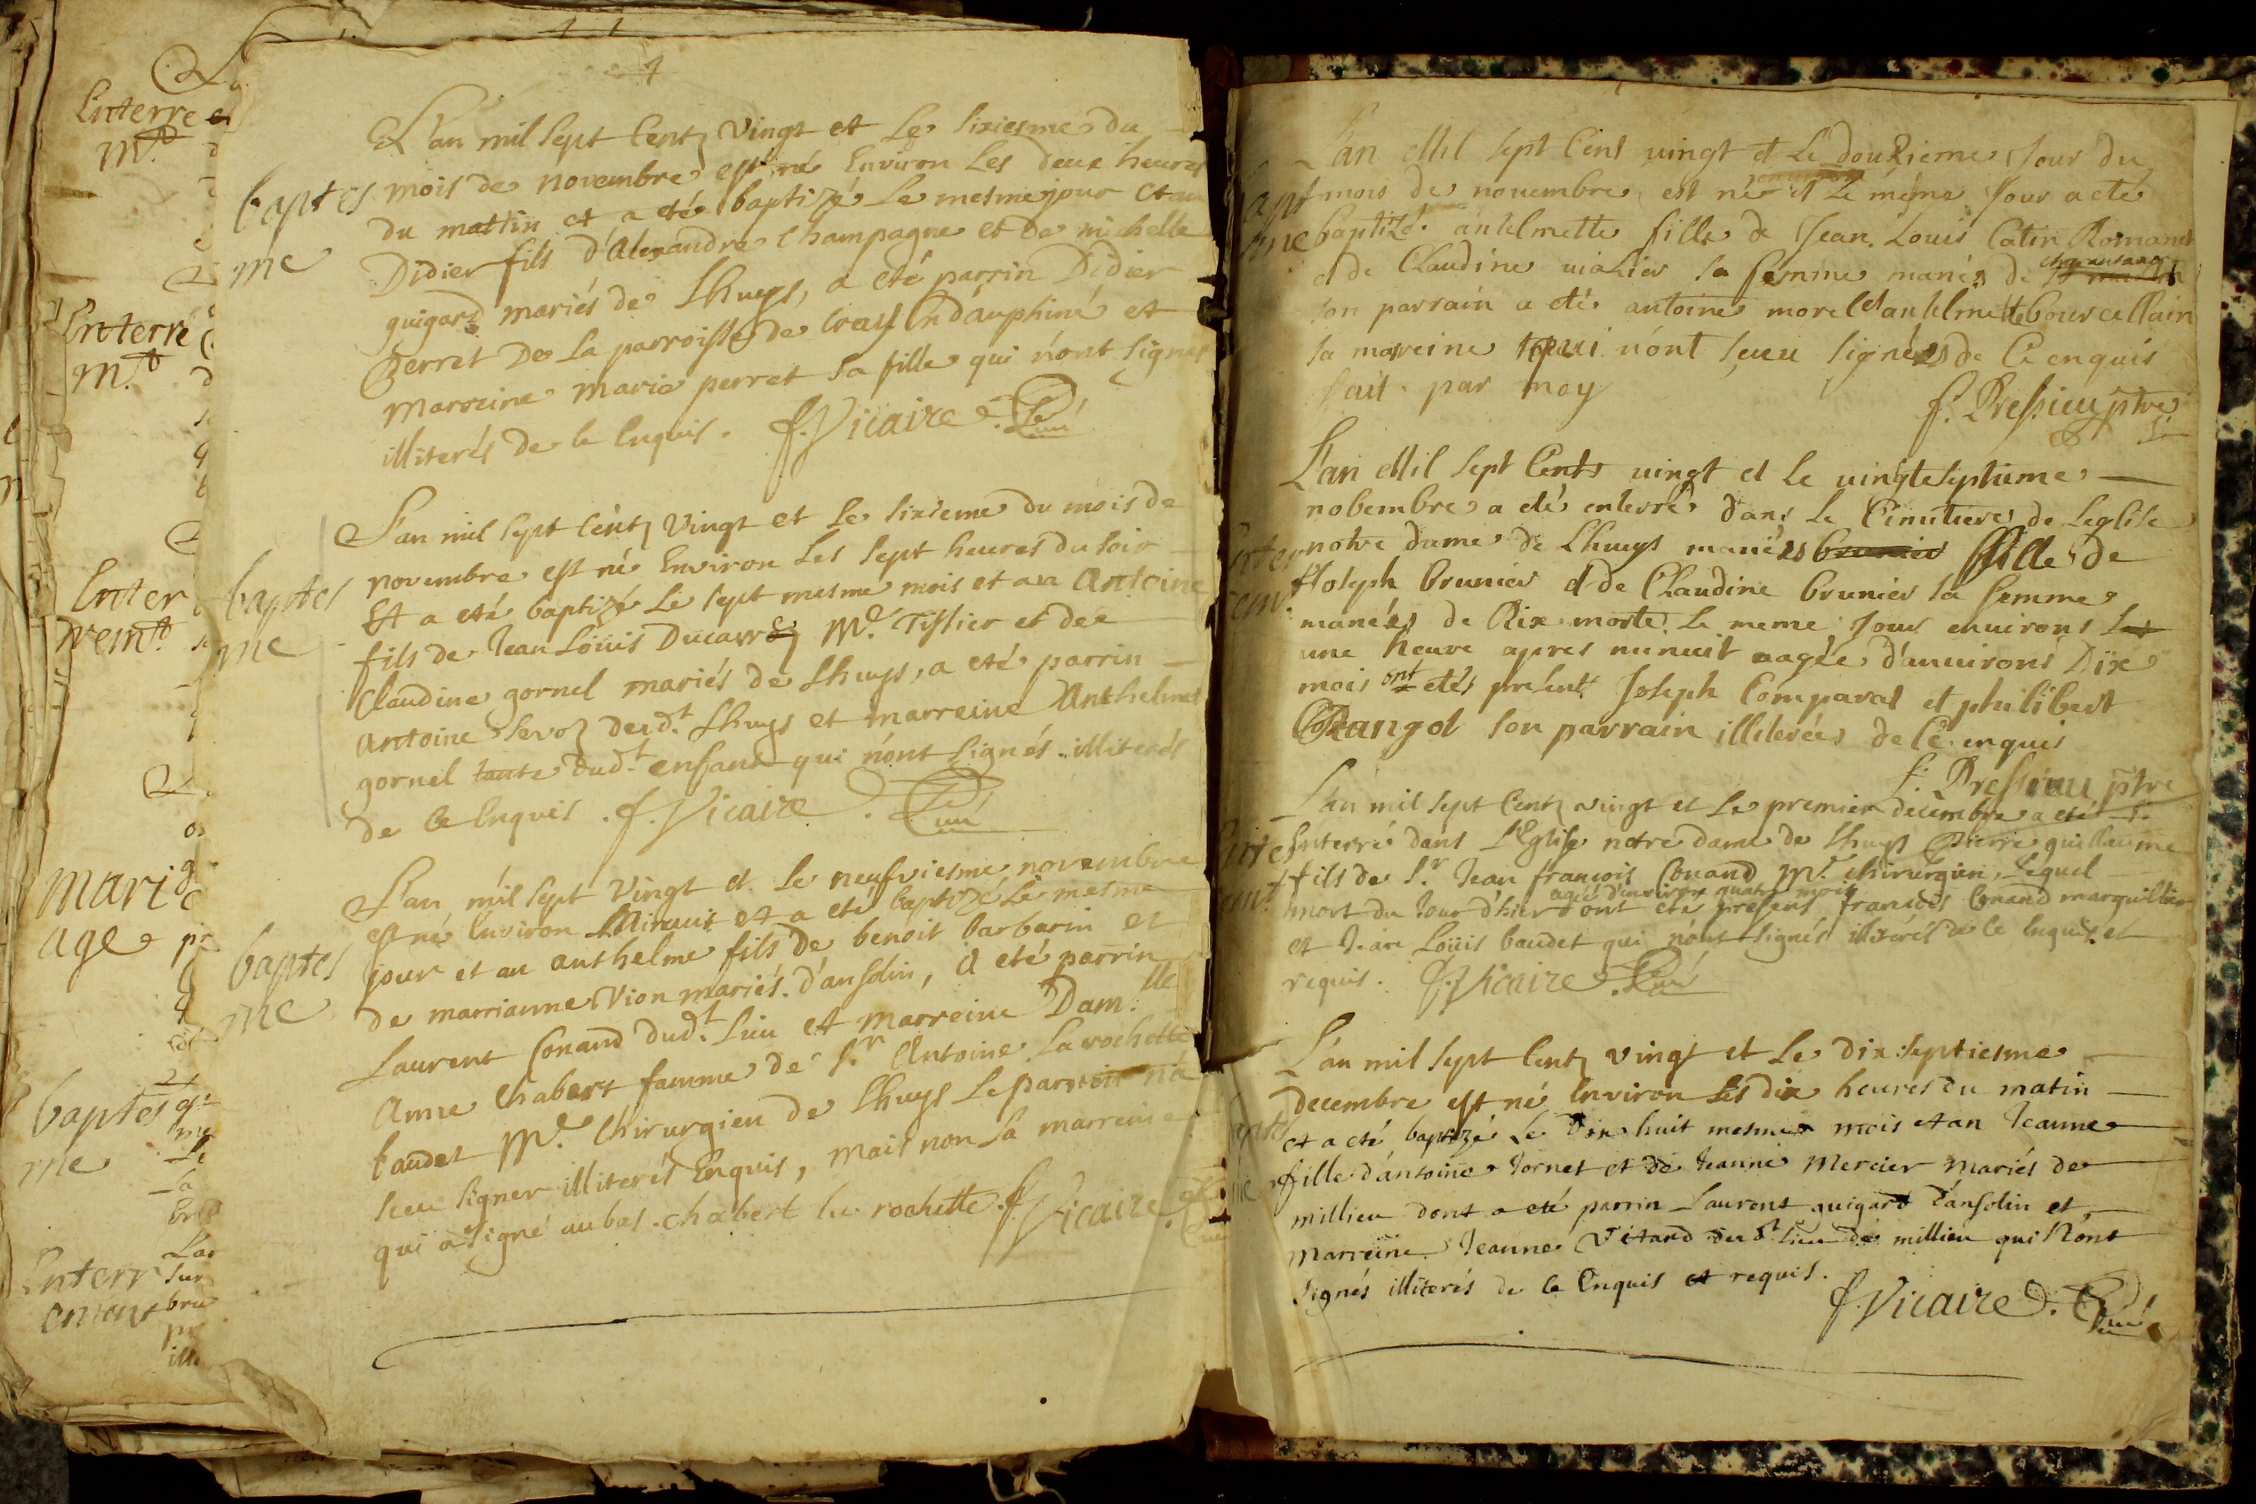 Enterre
m.t
Enterre
m.t
Enter
rem.t
mari
age
baptes
me
Enterr
ement
4
L'an mil sept Centz Vingt et Le sixiesme du
baptes
me
mois de novembre est né Environ Les deux heures
du mattin et a eté baptizé Le mesme jour et an
Didier fils d'Alexandre Champagne et de michelle
guigard mariés de Lhuys, a eté parrin Didier
perret De La parroisse de Cray En dauphiné et
marreine marie perret sa fille qui n'ont signés
illiterés de ce Enquis. f. Vicaire Curé
L'an mil sept Centz Vingt et Le sixieme du mois de
baptes
me
novembre est né Environ Les sept heures du soir
Et a eté baptizé Le sept mesme mois et an Antoine
fils de Jean Loüis Ducarré m.e Tissier et de
Claudine gornel mariés de Lhuys, a eté parrin
Antoine Servoz dud.t Lhuys et marreine Anthelmet
gornel tante dud.t enfant qui n'ont signés illiterés
de ce Enquis. f. Vicaire. Curé
L'an mil sept Vingt et Le neufviesme novembre
baptes
me
est né Environ Minuit et a eté baptizé Le mesme
jour et an anthelme fils de benoit barbarin et
de marrianne Vion mariés d'ansolin, a eté parrin
Laurent Conand dud.t Lieu et marreine Dam.lle
Anne Chabert famme de S.r Antoine La rochette
baudet M.e Chirurgien de Lhuys Le parrein n'a
sceu signer illiterés Enquis, mais non La marreine
qui a signé au bas. chabert la rochette f. Vicaire Curé
L'an Mil sept Cent vingt et Le douzieme Jour du
mois de novembre est né et Le méme Jour a eté
baptizé antelmette fille de Jean Louis Catin Romanet
et de Claudine sa femme mariés de
son parrain a eté antoine morel et antelmette bourcellain
sa mareine qui n'ont sceu signéés de Ce enquis
fait par moy
f. Pressieu ptre
L'an Mil sept Cents vingt et le vingtesptieme
nobembre a eté enterré dans Le Cimitiere de Leglise
notre dame de Lhuys mariés brunier fille de
Joseph brunier et de Claudine brunier sa femme
mariéés de Rix morte Le meme Jour environs Les
une heure apres minuit aagée d'anvirons Dix
mois ont etés present Joseph Comparat et philibert
Crangot son parrain illiterées de Ce enquis
f. Pressieu ptre
L'an mil sept Centz vingt et Le premier decembre a eté
Enterré dans L'Eglise notre dame de Lhuys Pierre guillaume
fils de S.r Jean françois Conand M.e chirurgien, Lequel
agé d'environ quatre mois
mort du Jour d'hier dont eté presens françois Conand marguillier
et Jean Loüis baudet qui n'ont signés illiterés de ce Enquis et
requis. f. Vicaire Curé
L'an mil sept Centz vingt et Le dix septiesme
decembre est né Environ Les dix heures du matin
et a eté baptizé Le dix huit mesme mois et an Jeanne
fille d'antoine Jornet et de Jeanne Mercier mariés de
millieu dont a eté parrin Laurent guigard d'ansolin et
marreine Jeanne Vitand dud.t Lieu de millieu qui n'ont
signés illiterés de ce Enquis et requis.
f. Vicaire. Curé